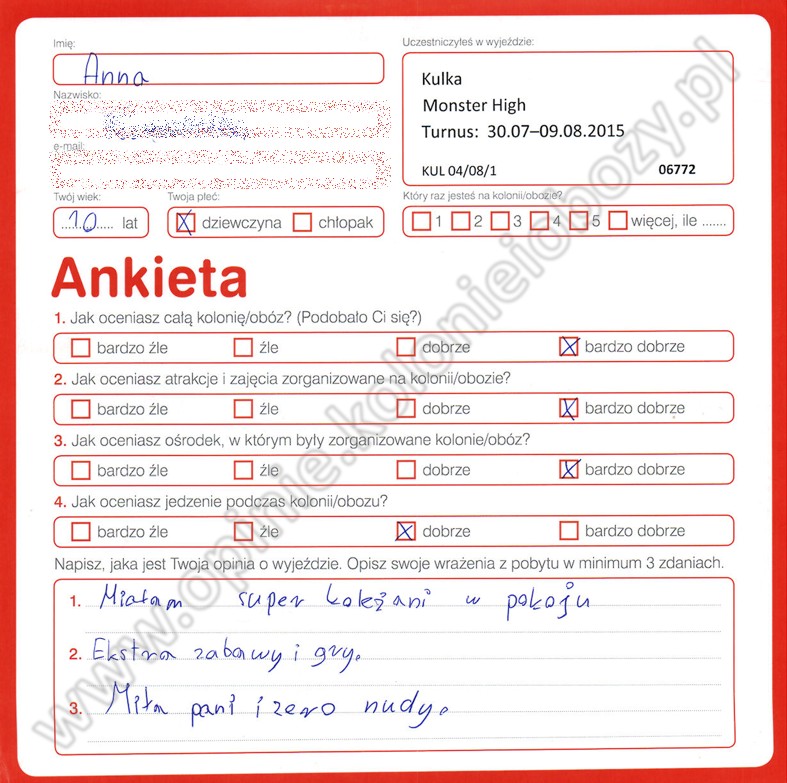 Imię:
Anna
Nazwisko:
e-mail:
Twój wiek:
10 lat
Twoja płeć:
dziewczyna chłopak
Uczestniczyłeś w wyjeździe:
Kulka
Monster High
Turnus: 30.07–09.08.2015
KUL 04/08/1 06772
Który raz jesteś na kolonii/obozie?
1 2 3 4 5 więcej, ile .......
Ankieta
1. Jak oceniasz całą kolonię/obóz? (Podobało Ci się?)
bardzo źle źle dobrze bardzo dobrze
2. Jak oceniasz atrakcje i zajęcia zorganizowane na kolonii/obozie?
bardzo źle źle dobrze bardzo dobrze
3. Jak oceniasz ośrodek, w którym były zorganizowane kolonie/obóz?
bardzo źle źle dobrze bardzo dobrze
4. Jak oceniasz jedzenie podczas kolonii/obozu?
bardzo źle źle dobrze bardzo dobrze
Napisz, jaka jest Twoja opinia o wyjeździe. Opisz swoje wrażenia z pobytu w minimum 3 zdaniach.
1. Miałam super koleżani w pokoju
2. Ekstra zabawy i gry.
3. Miła pani i zero nudy.
www.opinie.kolonieiobozy.pl